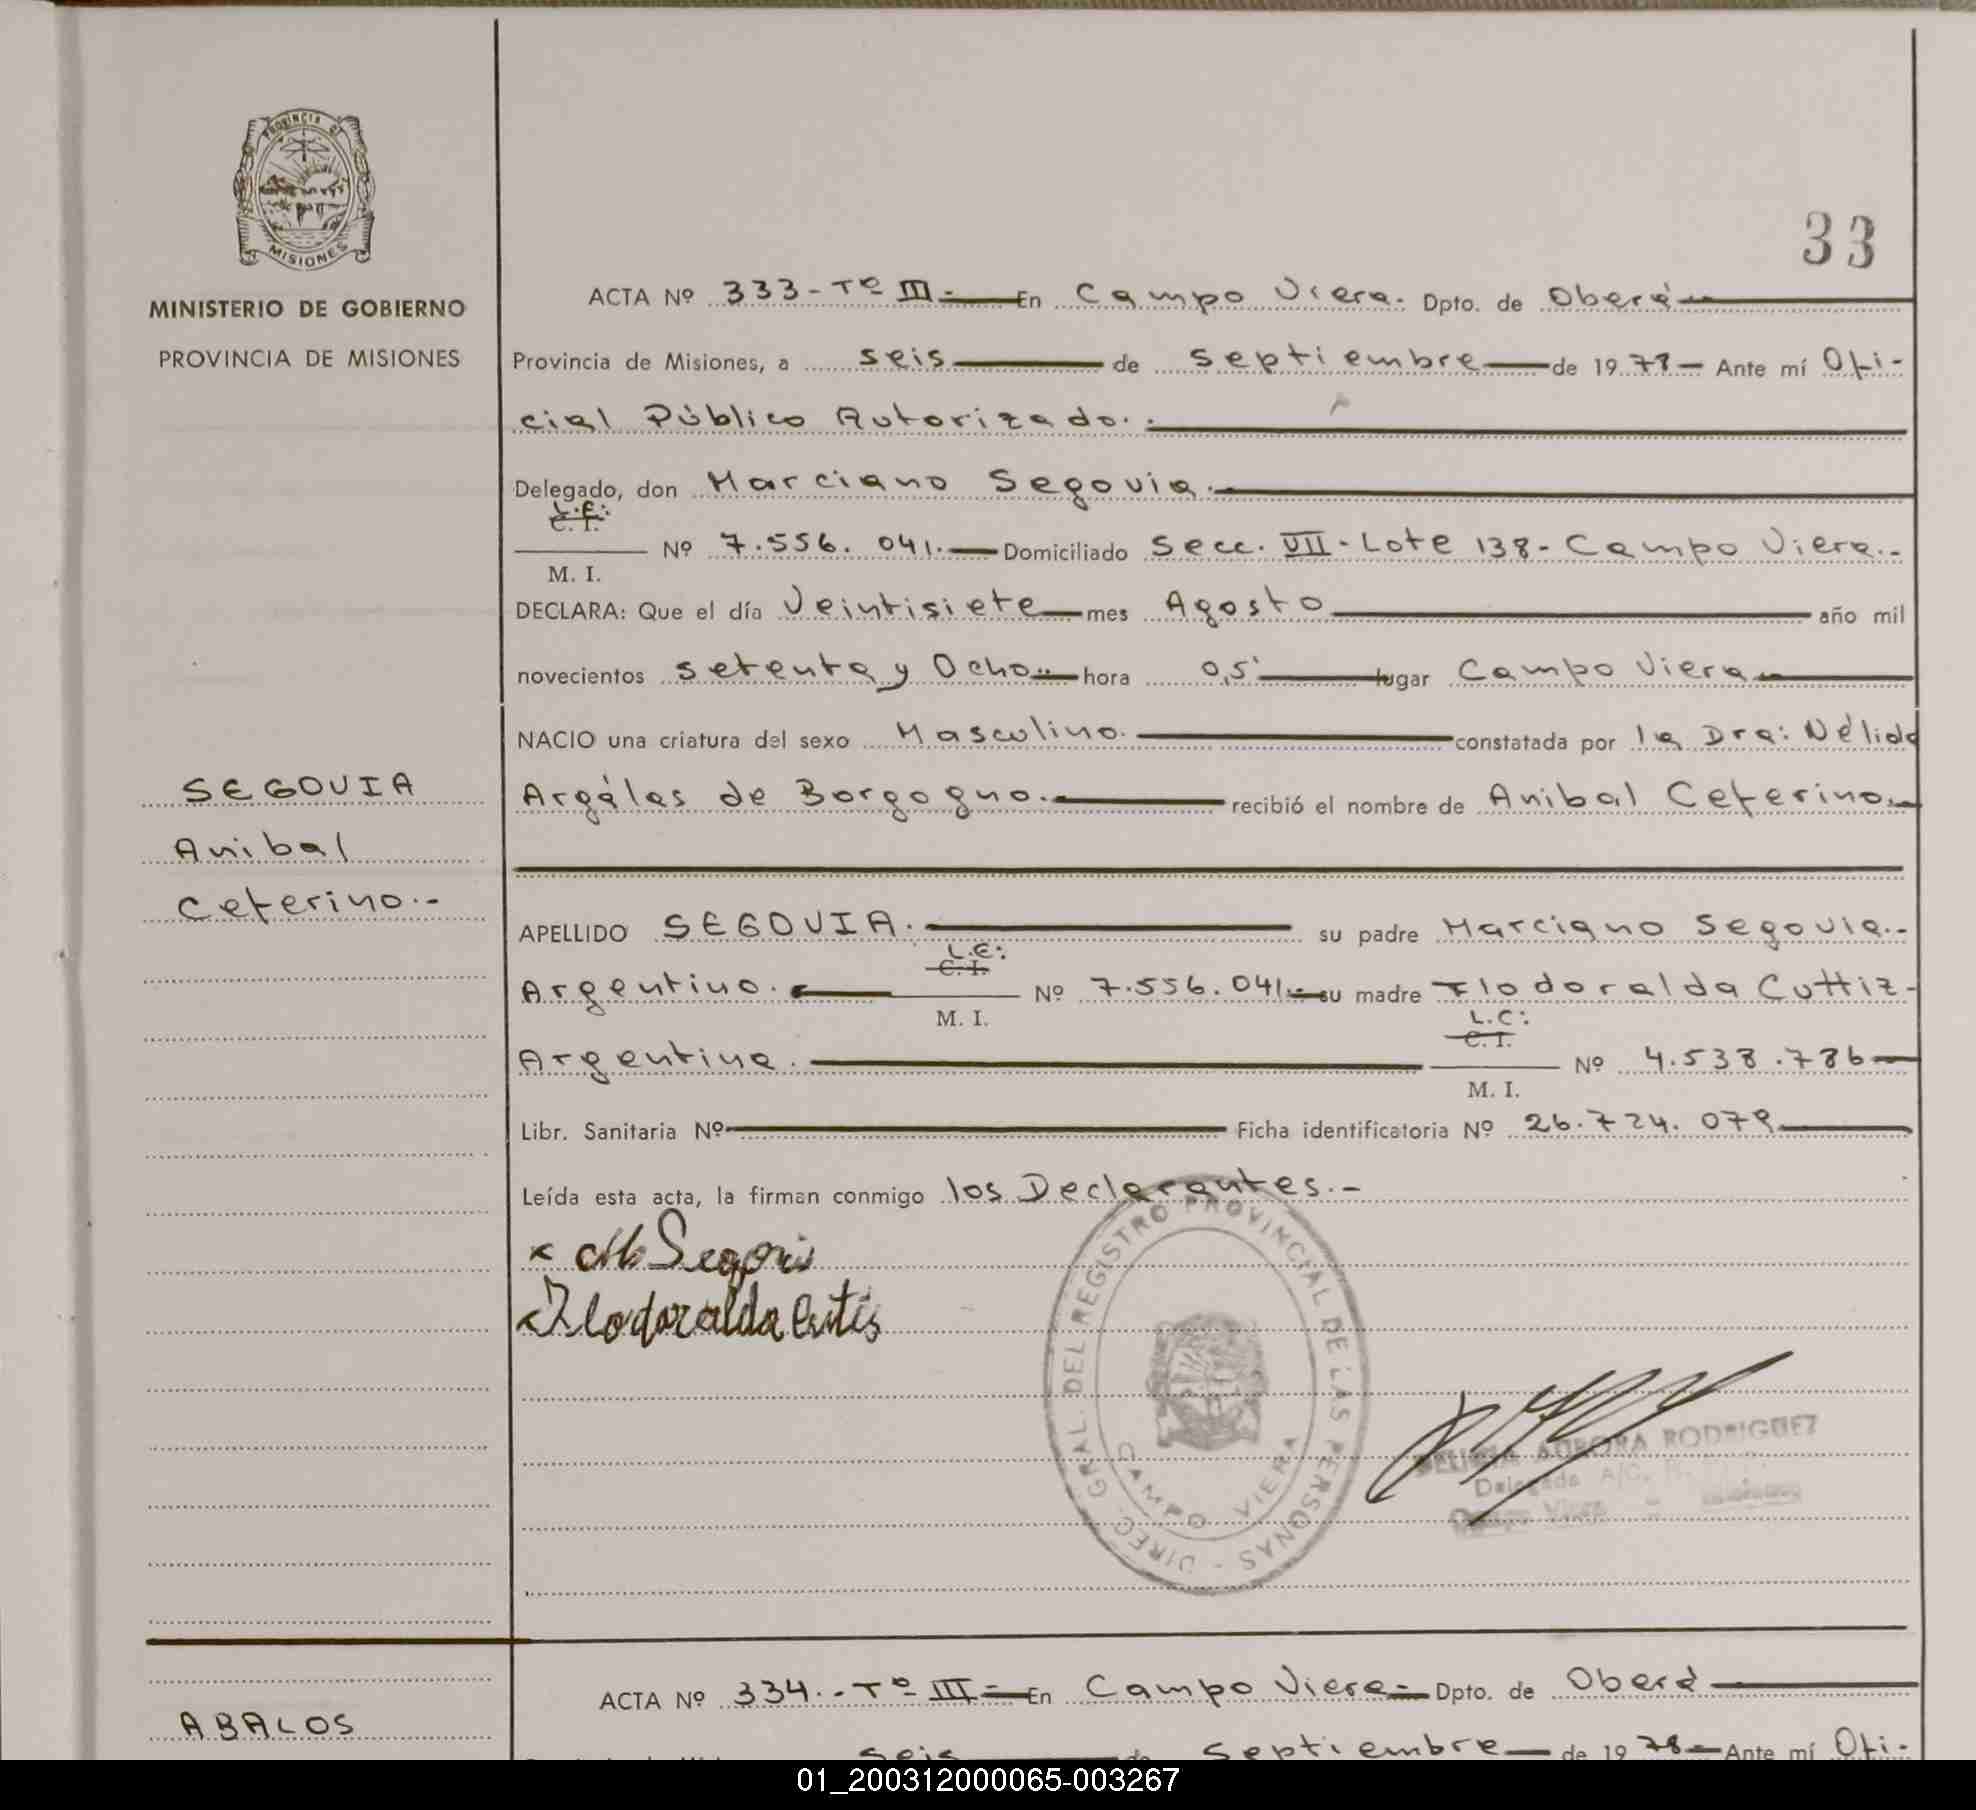 PROVINCIA DE
MISIONES
MINISTERIO DE GOBIERNO
PROVINCIA DE MISIONES
33
ACTA Nº 333-Tº III.- En Campo Viera. Dpto. de Oberá
Provincia de Misiones, a seis de Septiembre de 1978 Ante mí Ofi-
cial Público Autorizado.
Delegado, don Marciano Segovia.
L.E:
C. I.
Nº 7.556.041.- Domiciliado Secc. VII-Lote 138-Campo Viera.-
M. I.
DECLARA: Que el día Veintisiete mes Agosto año mil
novecientos setenta y Ocho.. hora 0,5' lugar Campo Viera
NACIO una criatura del sexo Masculino. constatada por la Dra: Nélida
SEGOVIA
Argálas de Borgogno. recibió el nombre de Anibal Ceferino.
Anibal
Ceferino.-
APELLIDO SEGOVIA. su padre Marciano Segovia.-
L.E:
C. I.
Argentino. Nº 7.556.041.- su madre Flodoralda Cuttiz-
M. I.
L.C:
C. I.
Argentina. Nº 4.538.786
M. I.
Libr. Sanitaria Nº Ficha identificatoria Nº 26.724.079
Leída esta acta, la firman conmigo los Declarantes.-
x M Segovia
x Flodoralda Cutis
DIREC. GRAL. DEL REGISTRO PROVINCIAL DE LAS PERSONAS -
CAMPO VIERA
AURORA RODRIGUEZ
Delegada A/C.
Campo Viera - Misiones
ACTA Nº 334.-Tº III- En Campo Viera- Dpto. de Oberá
ABALOS
seis de Septiembre de 1978 Ante mí Ofi-
01_200312000065-003267